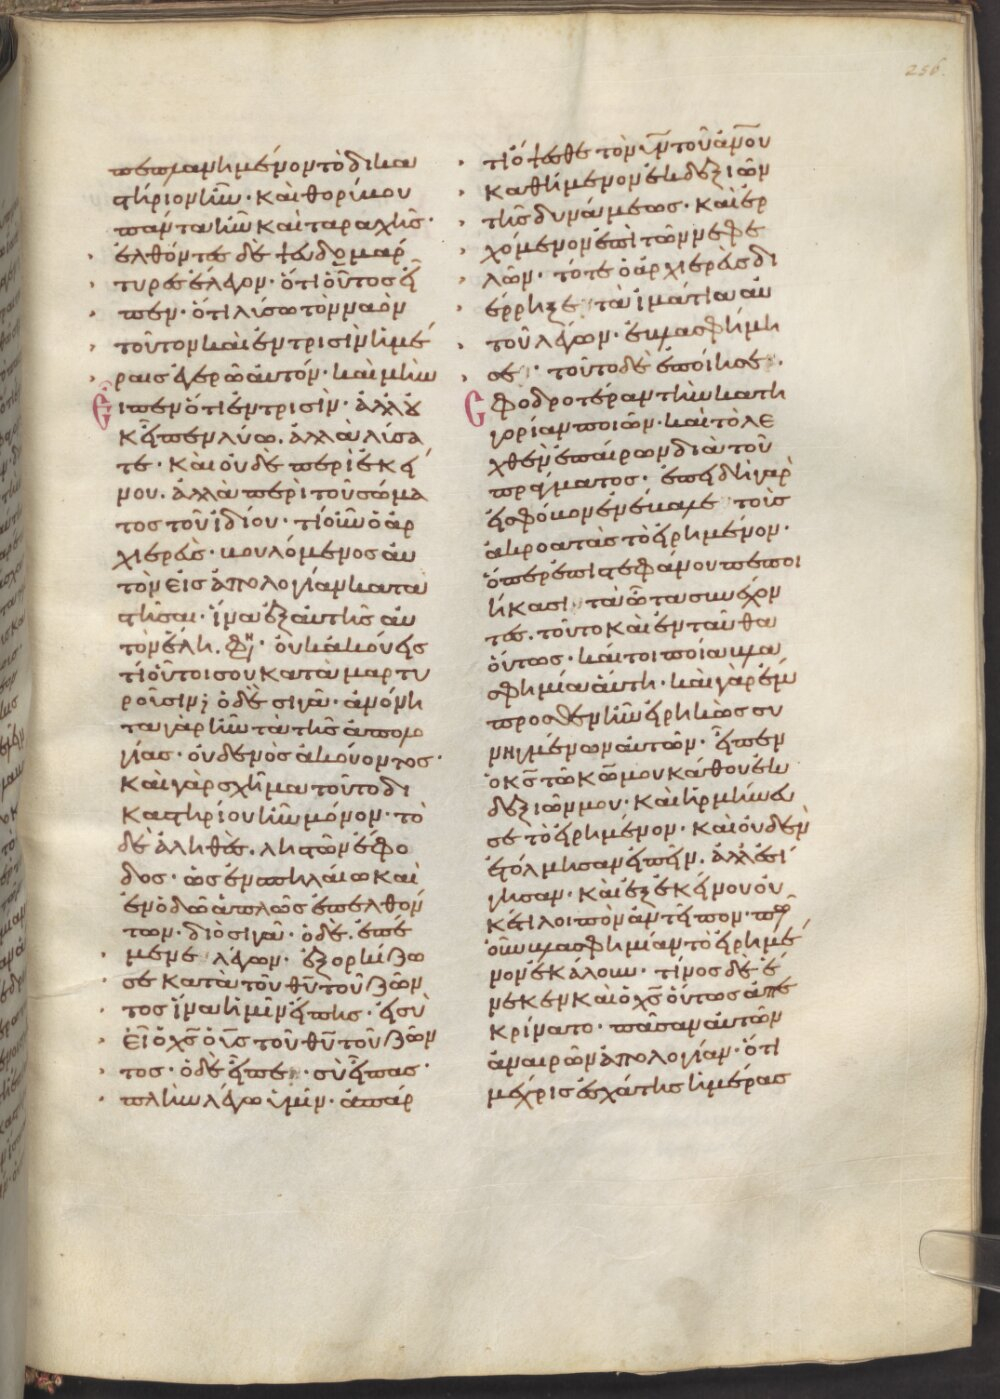 256.
πεπλανημένον τὸ δικα
στήριον ἦν · καὶ θορύβου
πάντα ἦν καὶ ταραχῆς ·
ἐλθόντες δὲ ψευδομάρ
τυρες ἔλεγον · ὅτι οὗτος εἶ
πεν · ὅτι λύσω τὸν ναὸν
τοῦτον καὶ ἐν τρισὶν ἡμέ
ραις ἐγερῶ αὐτόν · καὶ μὴν
εἶπεν ὅτι ἐν τρισὶν · ἀλλ' οὐ
κ εἶπεν λύσω . ἀλλὰ λύσα
τε · καὶ οὐδὲ περὶ ἐκεί
νου . ἀλλὰ περὶ τοῦ σώμα
τος τοῦ ἰδίου · τί οὖν ὁ ἀρ
χιερεύς · βουλόμενος αὐ
τὸν εἰς ἀπολογίαν κατα
στῆσαι · ἵνα ἐξ αὐτῆς αὐ
τὸν ἕλη . φησὶν · οὐκ ἀκούεις
τί οὗτοι σου καταμαρτυ
ροῦσιν ; ὁ δὲ σιγᾶ · ἀνόνη
τα γὰρ ἦν τὰ τῆς ἀπολο
γίας · οὐδενὸς ἀκούοντος ·
καὶ γὰρ σχῆμα τοῦτο δι
καστηρίου ἦν μόνον · τὸ
δὲ ἀληθὲς . ληστῶν ἔφο
δος · ὡς ἐν σπηλαίω καὶ
ἐν ὁδῶ ἁπλῶς ἐπελθόν
των · διὸ σιγᾶ · ὁ δὲ . ἐπέ
μενε λέγων · ἐξορκίζω
σε κατὰ τοῦ θῦ τοῦ ζῶν
τος ἵνα ἡμῖν εἴπης · εἰ σὺ
εἶ ὁ χς ὁ υς τοῦ θῦ τοῦ ζῶν
τος · ὁ δὲ εἶπε · σὺ εἶπας ·
πλὴν λέγω ὑμῖν · ἀπάρ
τι ὄψεσθε τὸν υν τοῦ ανου
καθήμενον ἐκ δεξιῶν
τῆς δυνάμεως · καὶ ἐρ
χόμενον ἐπὶ τῶν νεφε
λῶν · τότε ὁ ἀρχιερεὺς δι
έρρηξε τὰ ἱμάτια αὐ
τοῦ λέγων · ἐβλασφήμη
σε · τοῦτο δὲ ἐποίησε ·
σφοδροτέραν τὴν κατη
γορίαν ποιῶν · καὶ τὸ λε
χθὲν ἐπαίρων διὰ τοῦ
πράγματος · ἐπειδὴ γὰρ
εἰς φόβον ἐνέβαλε τοὺς
ἀκροατὰς τὸ εἰρημένον ·
ὅπερ ἐπὶ στεφάνου πεποι
ήκασι τὰ ὦτα συνέχον
τες . τοῦτο καὶ ἐνταῦθα
οὕτως · καίτοι ποία βλα
σφημία αὕτη · καὶ γὰρ ἔμ
προσθεν ἦν εἰρηκὼς συ
νηγμένων αὐτῶν · εἶπεν
ὁ κς τῶ κῶ μου κάθου ἐκ
δεξιῶν μου · καὶ ἡρμήνευ
σε τὸ εἰρημένον · καὶ οὐδὲν
ἐτόλμησαν εἰπεῖν . ἀλλ' ἐσί
γησαν · καὶ ἐξ ἐκείνου οὐ
κέτι λοιπὸν ἀντεῖπον · πῶς
οὖν βλασφημίαν τὸ εἰρημέ
νον ἐκάλουν · τίνος δὲ ἕ
νεκεν καὶ ὁ χς οὕτως ἀπε
κρίνατο · πᾶσαν αὐτῶν
ἀναιρῶν ἀπολογίαν · ὅτι
μέχρις ἐσχάτης ἡμέρας